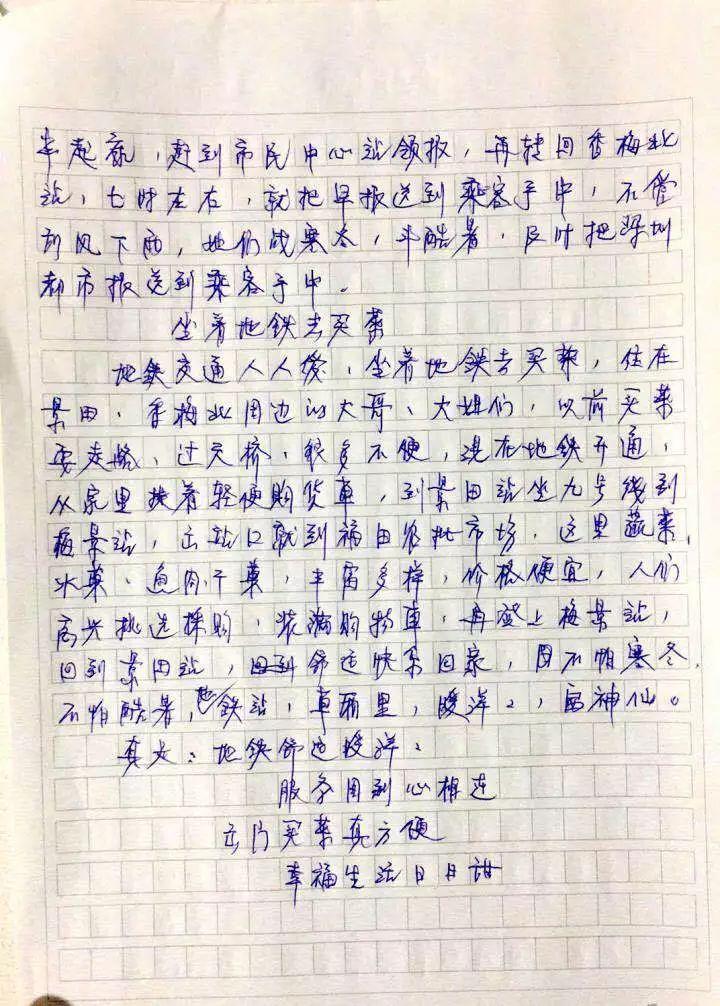 半起来，赶到市民中心站领报，再转回香梅北
站，七时左右，就把早报送到乘客手中，不管
刮风下雨，她们战寒冬，斗酷暑，及时把深圳
都市报送到乘客手中。
坐着地铁去买菜
地铁交通人人爱，坐着地铁去买菜，住在
景田、香梅北周边的大哥、大姐们，以前买菜
要走路，过天桥，很多不便，现在地铁开通，
从家里推着轻便购货車，到景田站坐九号线到
梅景站，出站口就到福田农批市场，这里蔬菜、
水菓、魚肉干菓，丰富多样，价格便宜，人们
高兴挑选採购，装满购物車，再登上梅景站，
回到景田站，回到 快乐回家，因不怕寒冬，
不怕酷暑，地铁站，車厢里，暖洋，，神仙。
真女：地铁
服务周到心相连
出门买菜真方便
幸福生活日日甜